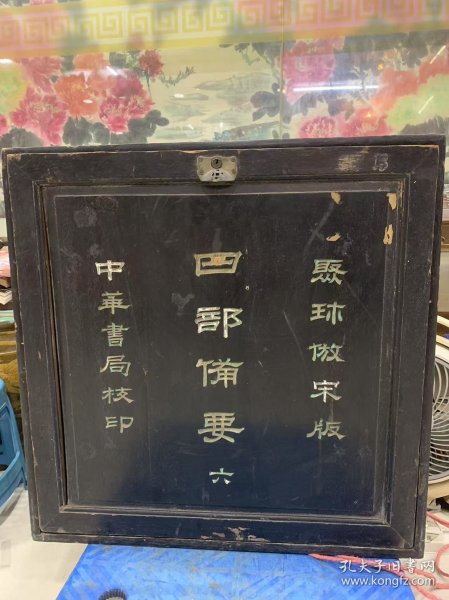 聚珎倣宋版
四部備要 六
中華書局校印
13
孔夫子旧书网
www.kongfz.com